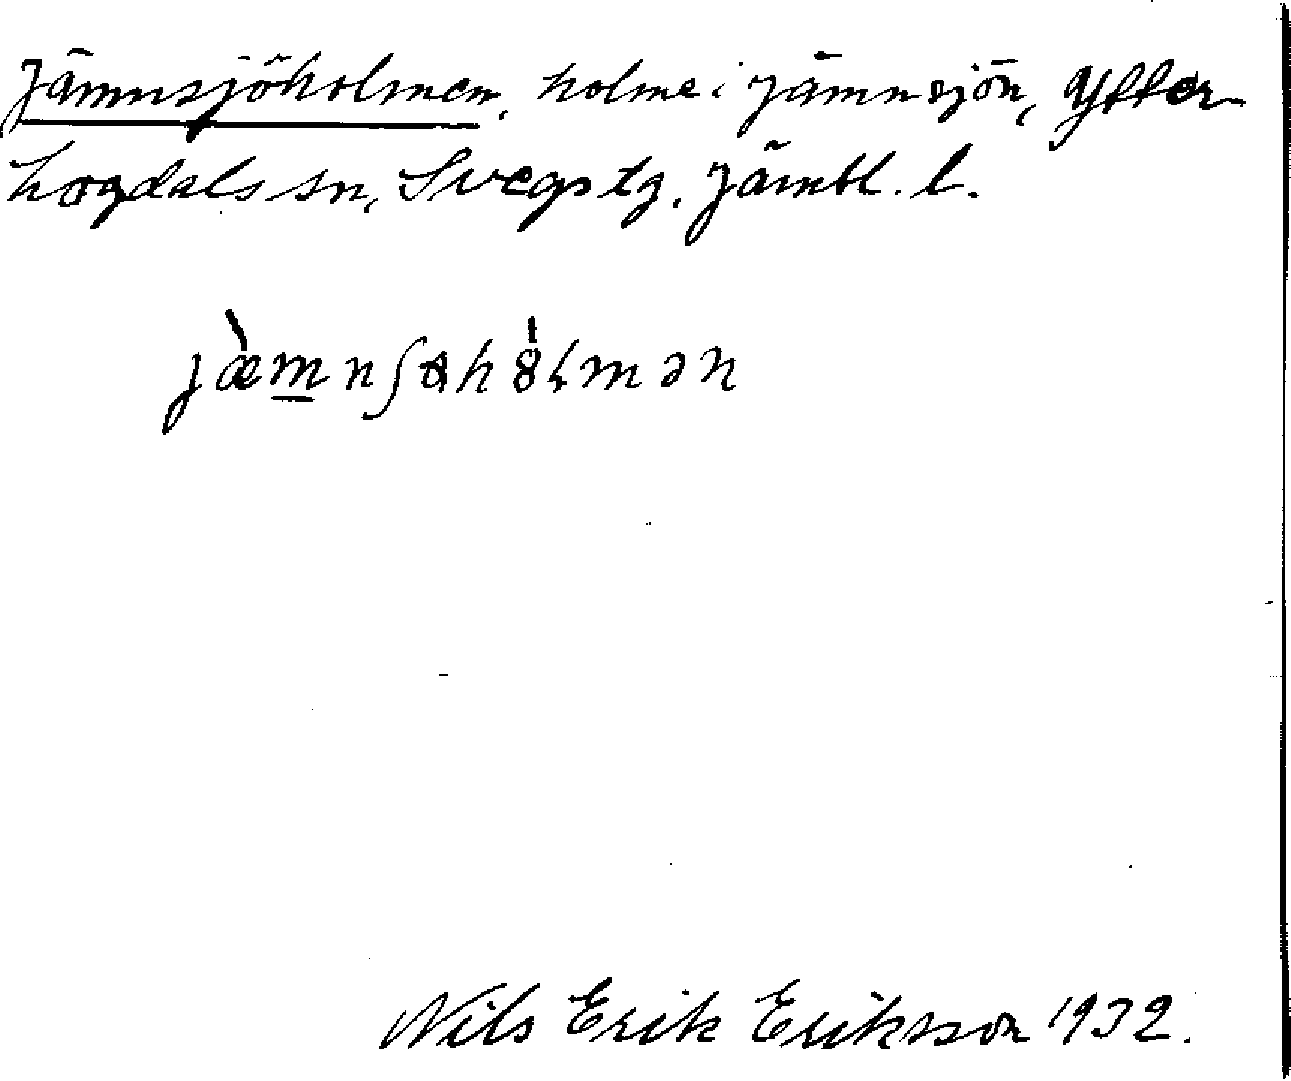 Jämnsjöholmen, holme i Jämnsjön, Ytter-
hogdals sn, Svegs tg. Jämtl. l.
Nils Erik Eriksson 1932.